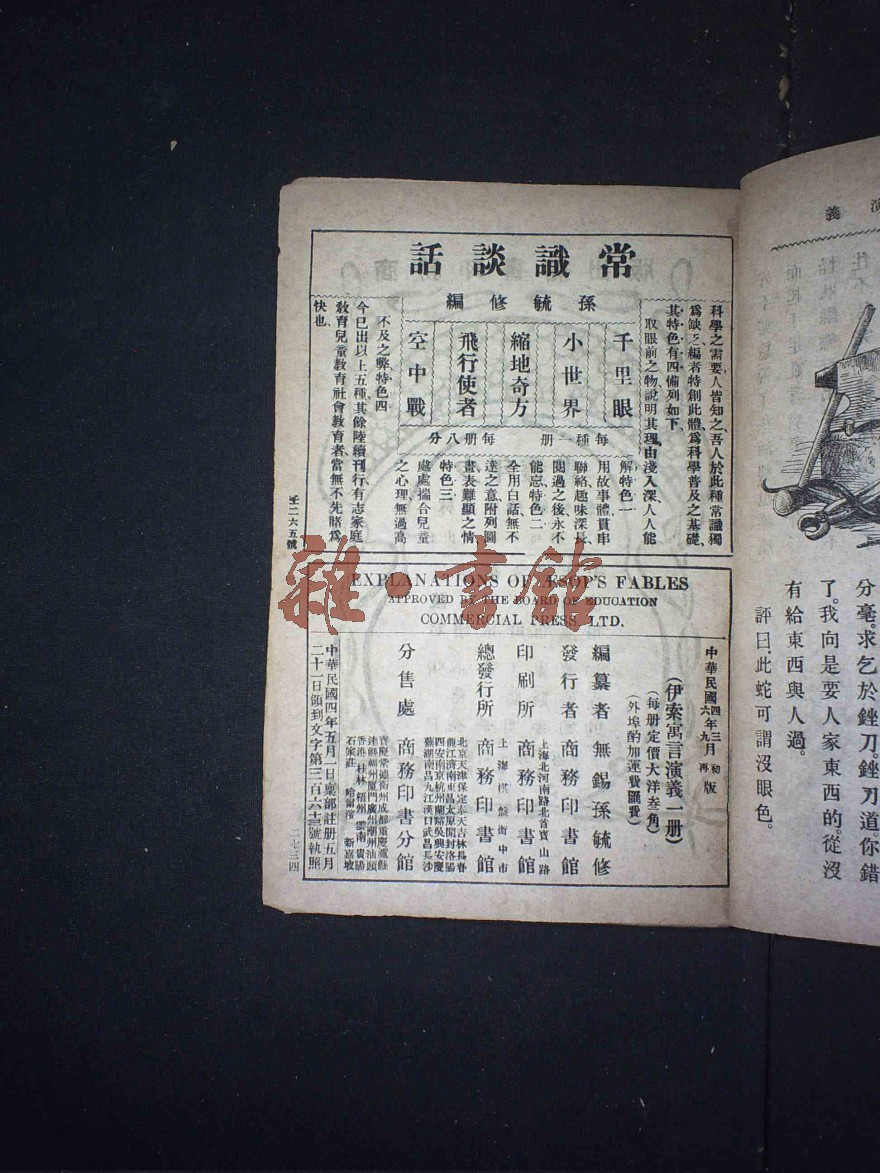 常識談話
孫毓修編
科學之需要、人皆知之、吾人於此種常識獨
爲缺乏、編者特創此體、爲科學普及之基礎、
其特色有四、備列如下、
取眼前之物、說明其理、由淺入深、人人能
解、特色一
用故事體貫串
聯絡、趣味深長、
閱過之後、永不
能忘、特色二
全用白話、無不
達之意、附列圖
畫、表難顯之情、
特色三
處處揣合兒童
之心理、無過高
不及之弊、特色四
今已出以上五種、其餘陸續刊行、有志家庭
教育兒童教育社會教育者、當無不先睹爲
快也、
千里眼
小世界
縮地奇方
飛行使者
空中戰
每種一册
每册八分
壬二六五號
EXPLANATIONS OF ÆSOP'S FABLES
APPROVED BY THE BOARD OF EDUCATION
COMMERCIAL PRESS, LTD.
中華民國四年三月初版
六年九月再版
(伊索寓言演義一册)
(每册定價大洋叁角)
(外埠酌加運費匯費)
編纂者 無錫孫毓修
發行者 商務印書館
上海北河南路北首寶山路
印刷所 商務印書館
上海棋盤街中市
總發行所 商務印書館
北京天津保定奉天吉林長春
龍江濟南東昌太原開封洛陽
西安南京杭州蘭谿吳興安慶
蕪湖南昌九江漢口武昌長沙
分售處 商務印書分館
寶慶常德衡州成都重慶瀘縣
達縣福州廈門廣州潮州汕頭
香港桂林梧州雲南貴陽
石家莊 哈爾濱 新嘉坡
中華民國四年五月一日稟部註册五月
二十一日領到文字第三百六十三號執照
二七三四
雜·書館
演義
分毫。求乞於銼刀。銼刀道。你錯
了。我向是要人家東西的。從沒
有給東西與人過。
評曰。此蛇可謂沒眼色。